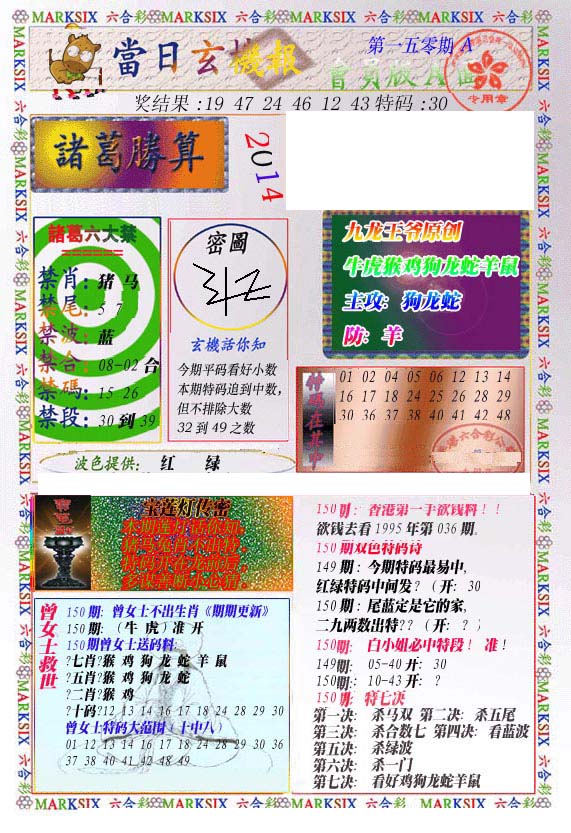 MARKSIX 六合彩 MARKSIX 六合彩 MARKSIX 六合彩 MARKSIX 六合彩 MARKSIX 六合彩
當日玄機報
第一五零期 A
會員版 A 面
专用章
奖结果:19 47 24 46 12 43 特码:30
諸葛勝算
2014
諸葛六大禁
禁肖:猪 马
禁尾:5 7
禁波:蓝
禁合:08-02 合
禁碼:15 26
禁段:30 到 39
密圖
玄機話你知
今期平码看好小数
本期特码追到中数,
但不排除大数
32 到 49 之数
九龙王爷原创
牛虎猴鸡狗龙蛇羊鼠
主攻:狗龙蛇
防:羊
特码在其中
01 02 04 05 06 12 13 14
16 17 18 24 25 28 29
30 36 37 38 40 41 42 48
波色提供: 红 绿
宝莲灯传密
曾女士救世
150 期:曾女士不出生肖《期期更新》
150 期:(牛 虎)准 开
150 期曾女士送码料:
?七肖?猴 鸡 狗 龙 蛇 羊 鼠
?五肖?猴 鸡 狗 龙 蛇
?二肖?猴 鸡
?十码?12 13 14 16 17 18 24 28 29 30
曾女士特码大范围﹝十中八﹞
01 12 13 14 16 17 18 24 28 29 30 36
37 38 40 41 42 48 49
150 期:香港第一手欲钱料!!
欲钱去看 1995 年第 036 期.
150 期双色特码诗
149 期:今期特码最易中,
红绿特码中间发?(开:30
150 期:尾蓝定是它的家,
二九两数出特??(开:?)
150期: 白小姐必中特段! 准!
149期: 05-40 开: 30
150期:: 10-43 开: ?
150 期:特七决
第一决: 杀马双 第二决: 杀五尾
第三决: 杀合数七 第四决: 看蓝波
第五决: 杀绿波
第六决: 杀一门
第七决: 看好鸡狗龙蛇羊鼠
MARKSIX 六合彩 MARKSIX 六合彩 MARKSIX 六合彩 MARKSIX 六合彩 MARKSIX 六合彩